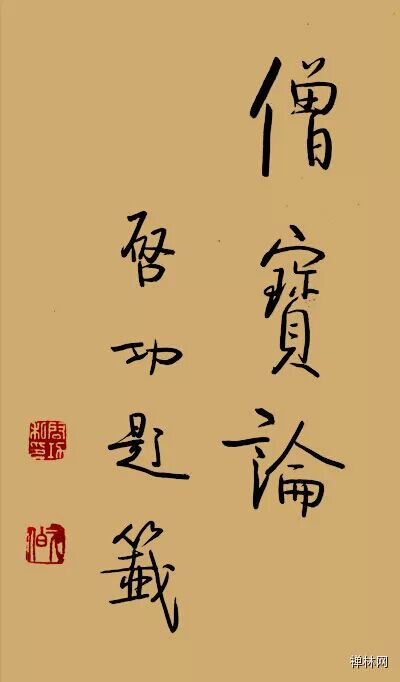 僧寶論
啓功題籤
禅林网